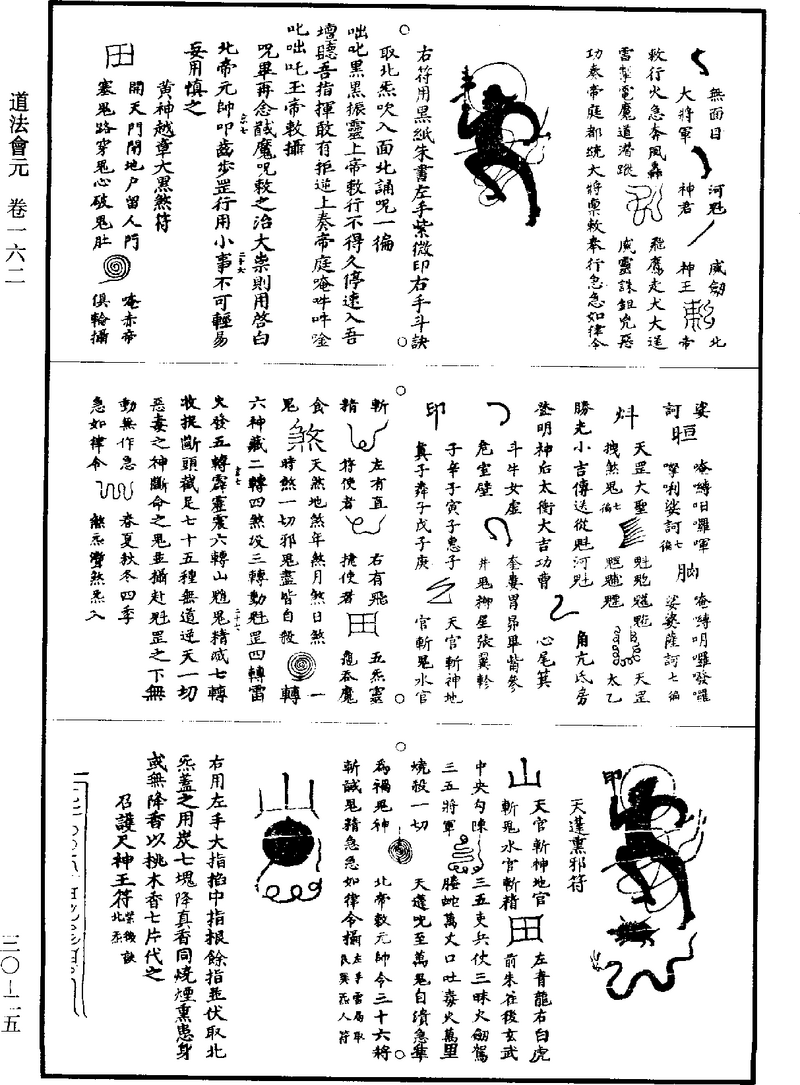 道法會元 卷一六二
三〇—二五
無面目 河魁 威劍北
大將軍 神君 神王 帝
敕行火急奉風轟 飛鷹走犬大逞
雷掣電魔道潛蹤 威靈誅鉏兇惡
功奏帝庭都統大將稟敕奉行急急如律令
右符用黑紙朱書左手紫微印右手斗訣
取北炁吹入面北誦呪一徧
咄叱黑黑振靈上帝敕行不得久停速入吾
壇聽吾指揮敢有拒逆上奏帝庭唵吽吽唫
叱咄吒玉帝敕攝
呪畢再念馘魔呪敕之治大祟則用啓白
北帝元帥叩齒步罡行用小事不可輕易
妄用慎之
黃神越章大黑煞符
開天門閉地戶留人門 唵赤帝
塞鬼路穿鬼心破鬼肚 俱輪攝
娑 唵嚩呾囉㖷 唵嚩明囉發囉
訶 嚤唎娑訶七徧 娑婆薩訶七徧
天罡大聖 天罡
拽煞鬼七徧 太乙
勝光小吉傳送從魁河魁 角亢氐房
登明神后太衝大吉功曹 心尾箕
斗牛女虛 奎婁胃昴畢觜參
危室壁 井鬼柳星張翼軫
子辛子寅子惠子 天官斬神地
真子舜子戊子庚 官斬鬼水官
斬 左有直 右有飛 五炁靈
精 符使者 捷使者 竜吞魔
食 天煞地煞年煞月煞日煞 一
鬼 時煞一切邪鬼盡皆自殺 轉
六神藏二轉四煞沒三轉動魁罡四轉雷
火發五轉霹靂震六轉山魈鬼精滅七轉
收捉斷頭截足七十五種無道逆天一切
惡毒之神斷命之鬼並攝赴魁罡之下無
動無作急 春夏秋冬四季
急如律令 煞炁灣煞炁入
天蓬熏邪符
天官斬神地官 左青龍右白虎
斬鬼水官斬精 前朱雀後玄武
中央勾陳 三五吏兵仗三昧火劍駕
三五將軍 螣蛇萬丈口吐毒火萬里
燒殺一切 天蓬呪至萬鬼自潰急準
為禍鬼神 北帝敕元帥令三十六將
斬馘鬼精急急如律令攝
右用左手大指掐中指根餘指並伏取北
炁蓋之用炭七塊降真香同燒煙熏患身
或無降香以桃木香七片代之
召護尺神王符